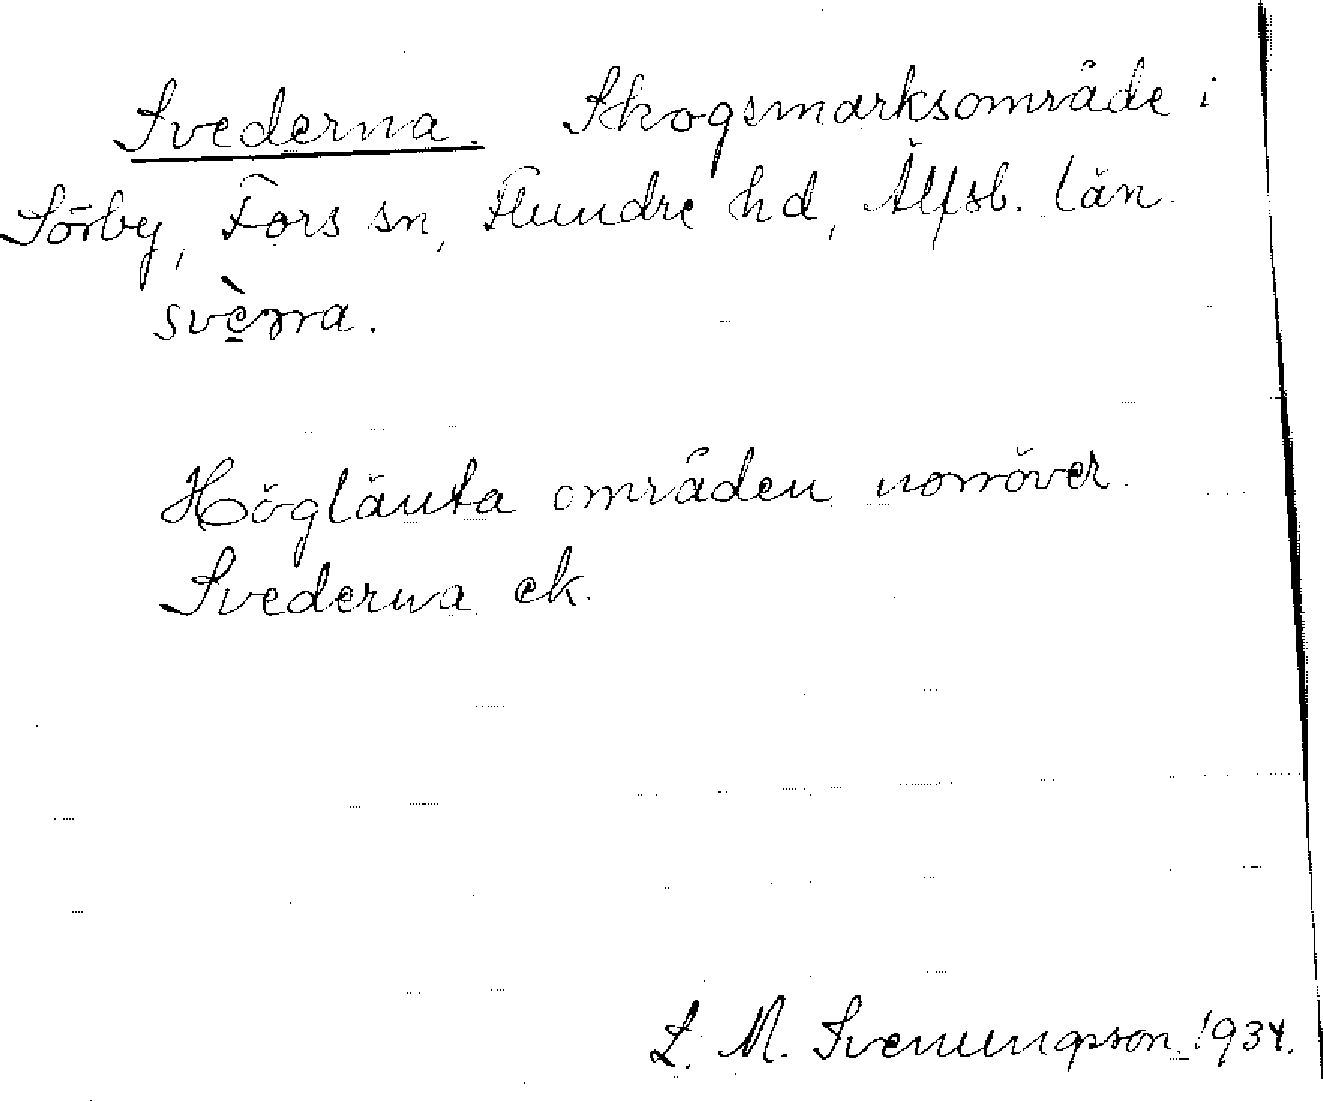 Svederna. Skogsmarksområde i
Sörby, Fors sn, Flundre hd, Älfsb. län.
svèrra.
Höglänta områden norröver.
Svederna ek.
L. M. Svenungsson 1934.